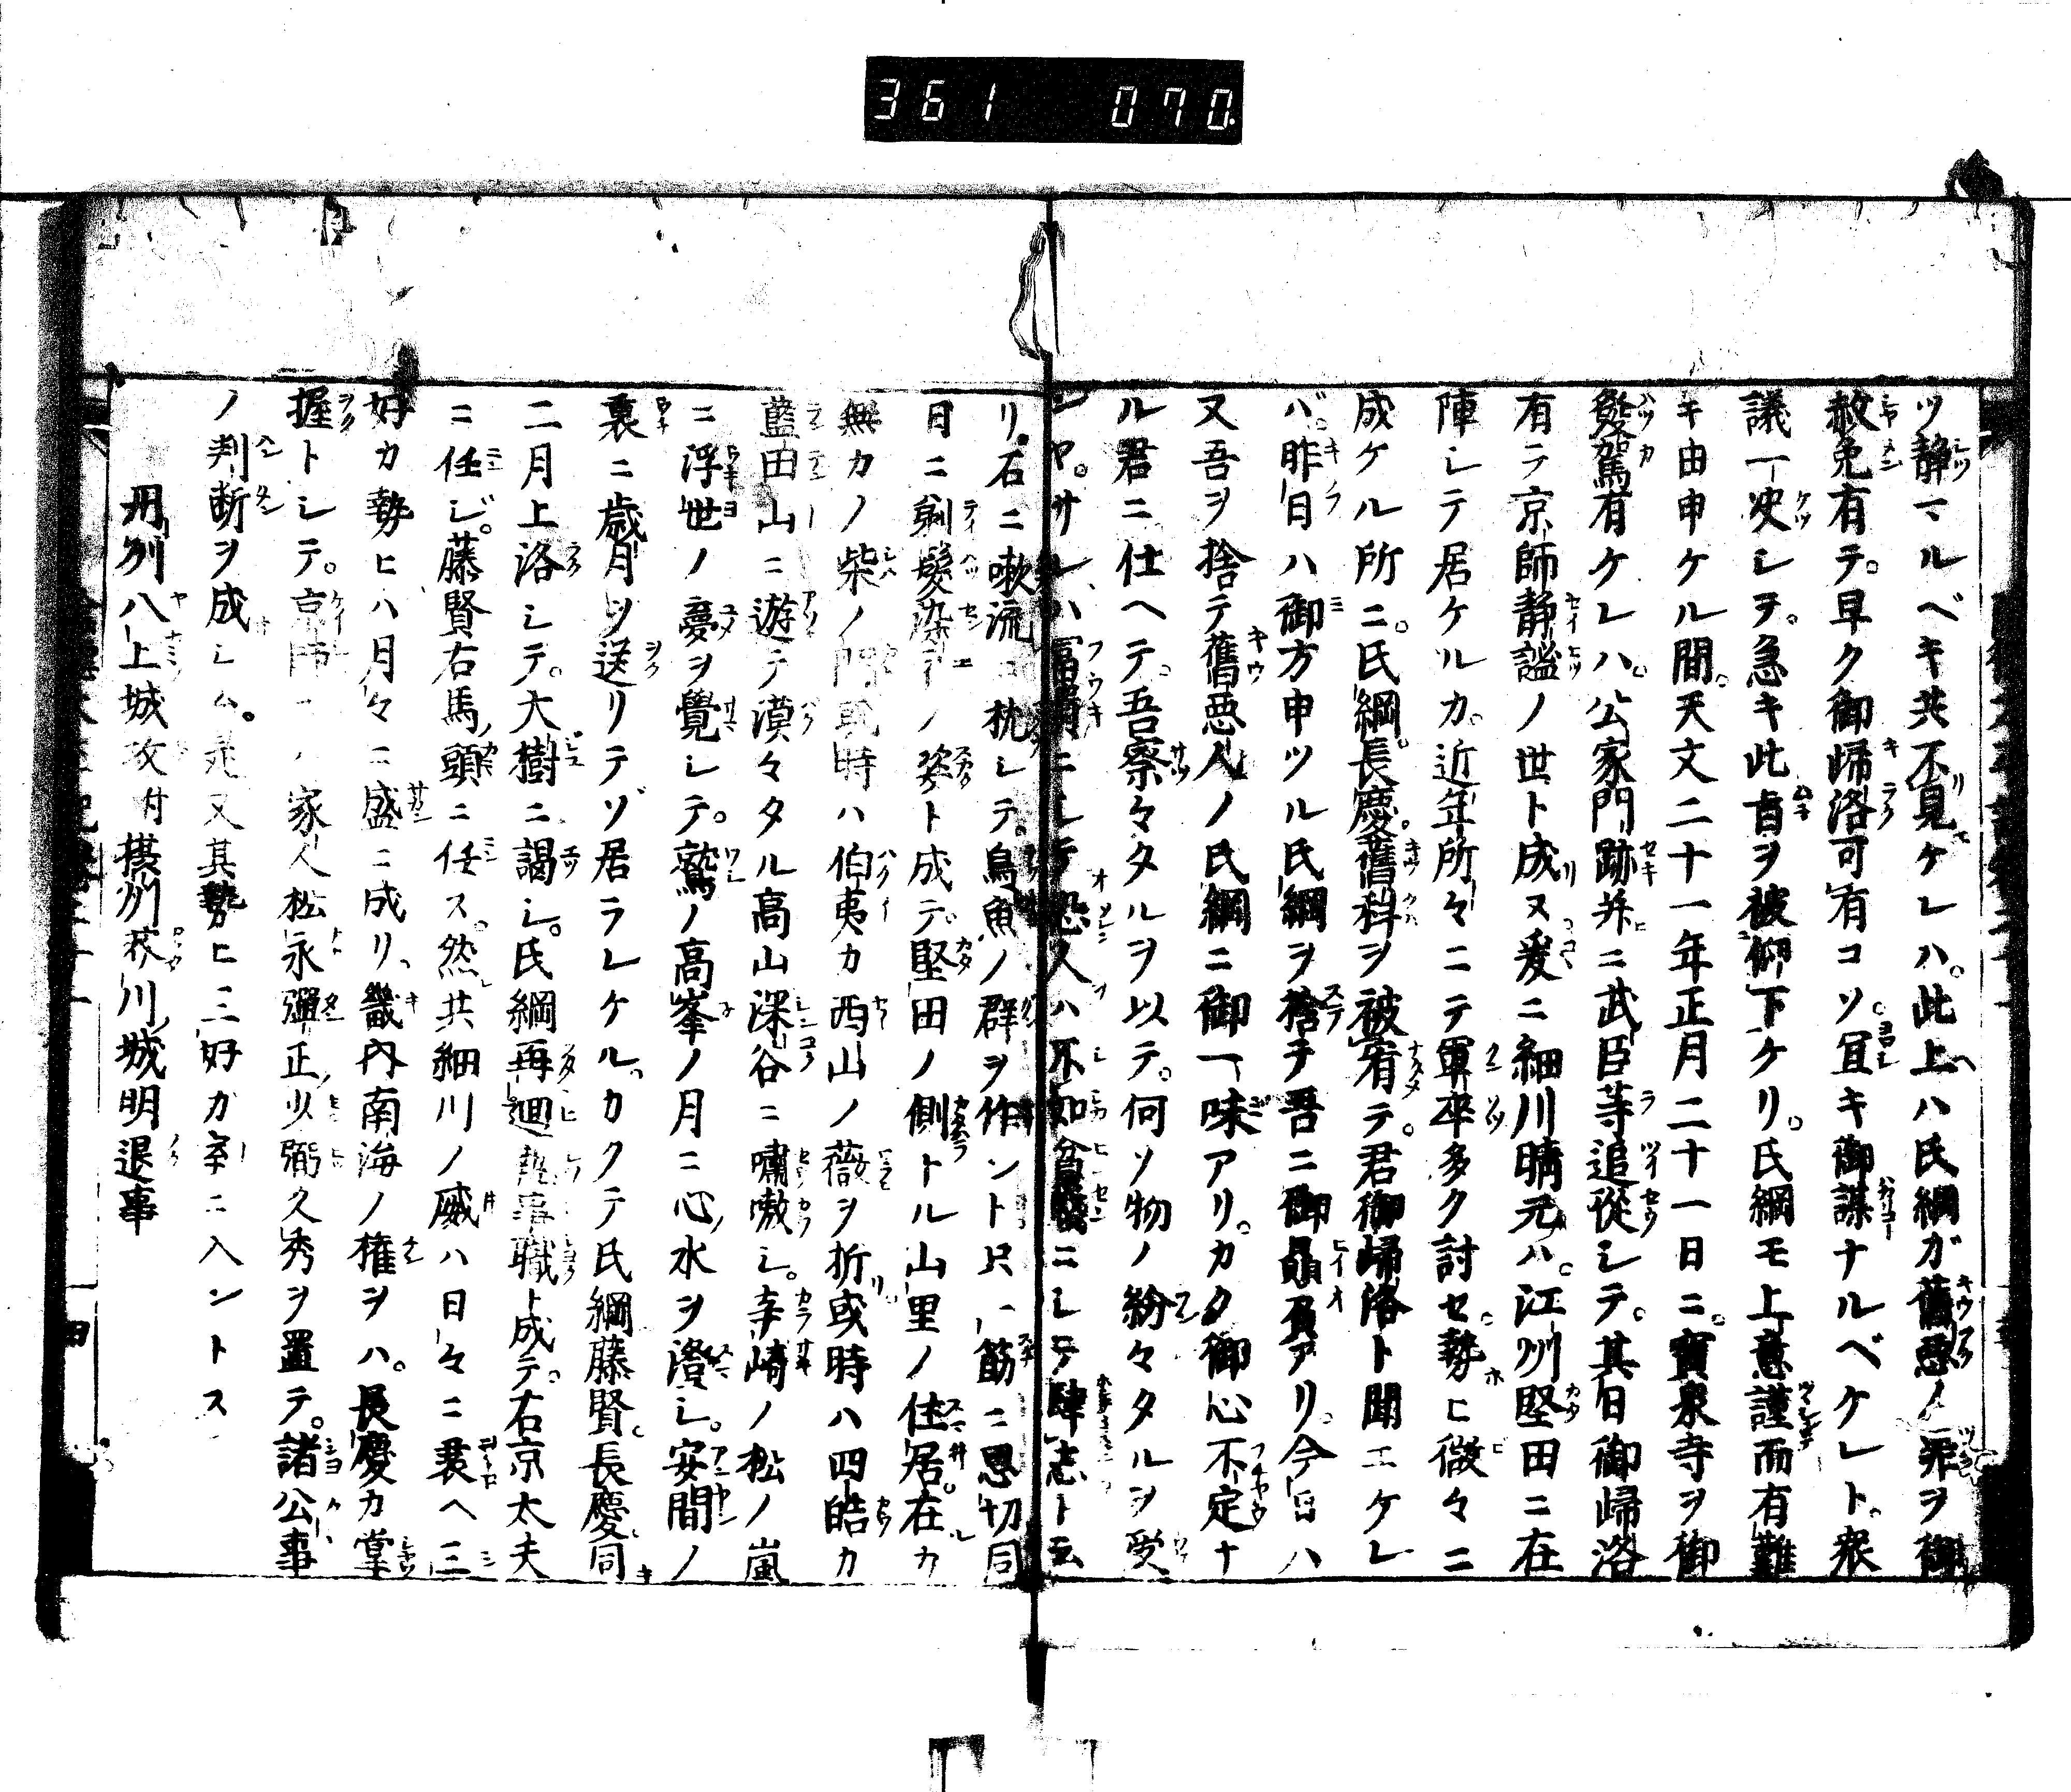 361 070.
ツ静マルベキ共不見ケレハ。此上ハ氏綱ガ舊悪ノ罪ヲ御
赦免有テ。早ク御帰洛可有コソ。宜キ御謀ナルベケレト。衆
議一决シヲ。急キ此旨ヲ被仰下ケリ。氏綱モ上意謹而有難
キ由申ケル間。天文二十一年正月二十一日ニ。寳泉寺ヲ御
發駕有ケレハ。公家門跡并ニ武臣等追從シテ。其日御帰洛
有テ京師静謐ノ世ト成ヌ爰ニ細川晴元ハ。江州堅田ニ在
陣シテ居ケルカ。近年所々ニテ軍卒多ク討セ。勢ヒ微々ニ
成ケル所ニ。氏綱。長慶。舊科ヲ被宥テ。君御帰洛ト聞エケレ
バ。昨日ハ御方申ツル氏綱ヲ捨テ吾ニ御贔屓アリ。今日ハ
又吾ヲ捨テ舊悪人ノ氏綱ニ御一味アリ。カク御心不定ナ
ル君ニ仕ヘテ。吾察々タルヲ以テ。何ソ物ノ紛々タルヲ受
ンヤ。サレハ富貴ニシテ恐人ハ不如貧賤ニシテ肆志ト云
リ。石ニ嗽流ニ枕シテ。鳥魚ノ群ヲ作ント只一筋ニ思切同
日ニ剃髮染衣ノ姿ト成テ。堅田ノ側トル山里ノ住居。在カ
無カノ柴ノ門或時ハ伯夷カ西山ノ薇ヲ折リ。或時ハ四皓カ
藍田山ニ遊テ漠々タル高山深谷ニ嘯嗷シ。辛崎ノ松ノ嵐
ニ浮世ノ夢ヲ覺シテ。鷲ノ高峯ノ月ニ心ノ水ヲ澄シ。安間ノ
裏ニ歳月ヲ送リテゾ居ラレケル。カクテ氏綱藤賢。長慶同
二月上洛シテ。大樹ニ謁シ。氏綱再廻執事職ト成テ。右京太夫
ニ任ジ。藤賢右馬頭ニ任ス。然共細川ノ威ハ日々ニ衰ヘ三
好カ勢ヒハ月々ニ盛ニ成リ、畿内南海ノ權ヲハ。長慶カ掌
握トシテ。京師ニハ家人松永彈正少弼久秀ヲ置テ。諸公事
ノ判断ヲ成シム。是又其勢ヒ三好カ牽ニ入ントス
丹州八上城攻付摂州芥川城明退事